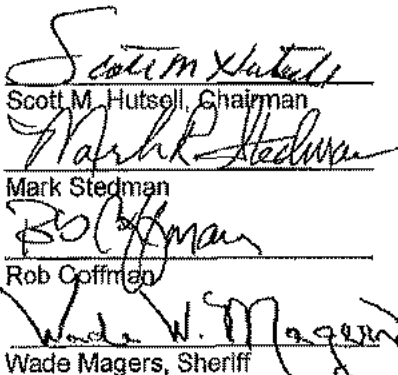 Scott M Hutsell
Scott M. Hutsell, Chairman
Mark R Stedman
Mark Stedman
Rob Coffman
Rob Coffman
Wade W. Magers
Wade Magers, Sheriff